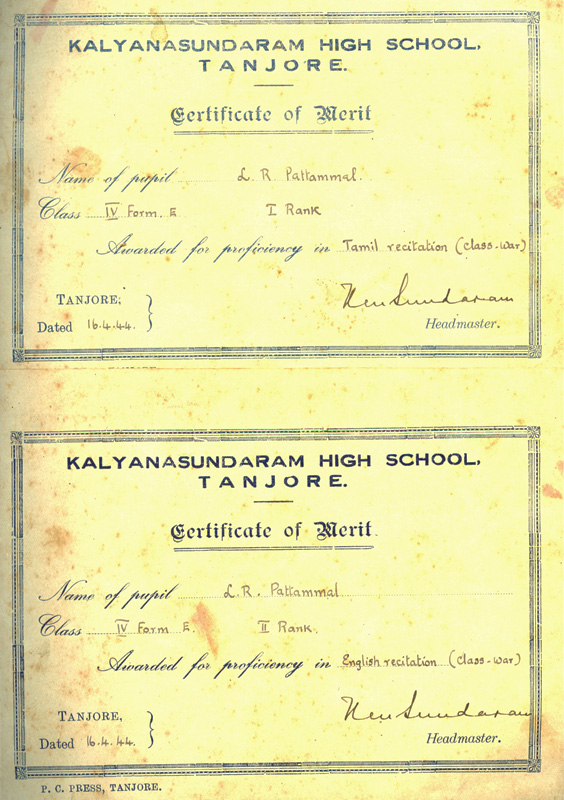 KALYANASUNDARAM HIGH SCHOOL,
TANJORE.
Certificate of Merit
Name of pupil L. R. Pattammal.
Class IV Form. E I Rank
Awarded for proficiency in Tamil recitation (Class-War)
TANJORE,
Dated 16.4.44.
Headmaster.
KALYANASUNDARAM HIGH SCHOOL,
TANJORE.
Certificate of Merit.
Name of pupil L. R. Pattammal
Class IV Form E. II Rank.
Awarded for proficiency in English recitation (Class-War)
TANJORE,
Dated 16.4.44.
Headmaster.
P. C. PRESS, TANJORE.